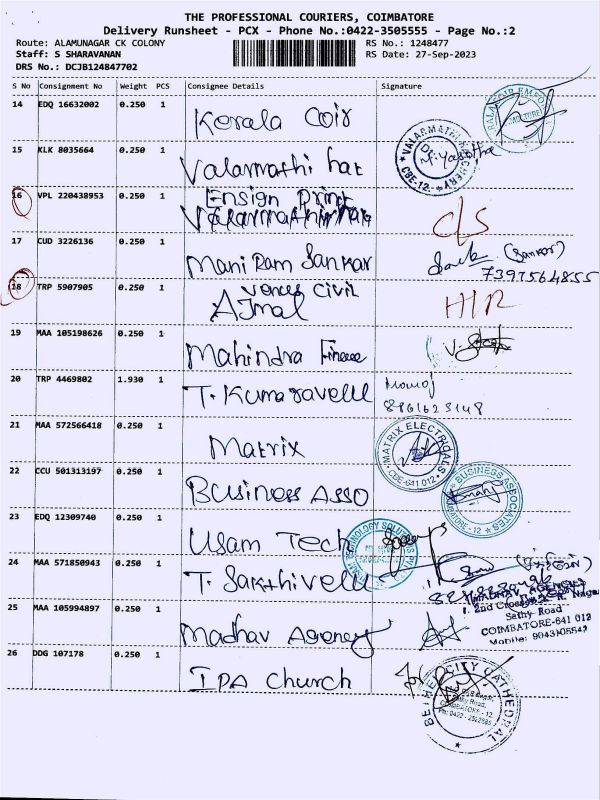 THE PROFESSIONAL COURIERS, COIMBATORE
Delivery Runsheet - PCX - Phone No.:0422-3505555 - Page No.:2
Route: ALAMUNAGAR CK COLONY RS No.: 1248477
Staff: S SHARAVANAN RS Date: 27-Sep-2023
DRS No.: DCJB124847702
S No Consignment No Weight PCS Consignee Details Signature
14 EDQ 16632002 0.250 1 Kerala Coir
15 KLK 8035664 0.250 1 Valarmathi
VALARMATHI
CBE-12
16 VPL 220438953 0.250 1 Ensign Print
C/S
17 CUD 3226136 0.250 1 Mani Ram Sankar (Sankar)
7397564855
18 TRP 5907905 0.250 1 Civil
Ajmal
19 MAA 105198626 0.250 1 Mahindra Finance
20 TRP 4469802 1.930 1 T. Kumaravelu
21 MAA 572566418 0.250 1 Matrix
MATRIX ELECTRICALS
CBE-641 012
22 CCU 501313197 0.250 1 Business Asso
BUSINESS ASSOCIATES
23 EDQ 12309740 0.250 1 Usam Tech
TECHNOLOGY SOLUTIONS
24 MAA 571850943 0.250 1 T. Sakthivelu
MADHAV AGENCY
25 MAA 105994897 0.250 1 Madhav Agency
Sathy Road
COIMBATORE-641 012
26 DDG 107178 0.250 1 IPA Church
BETHEL CITY CATHEDRAL